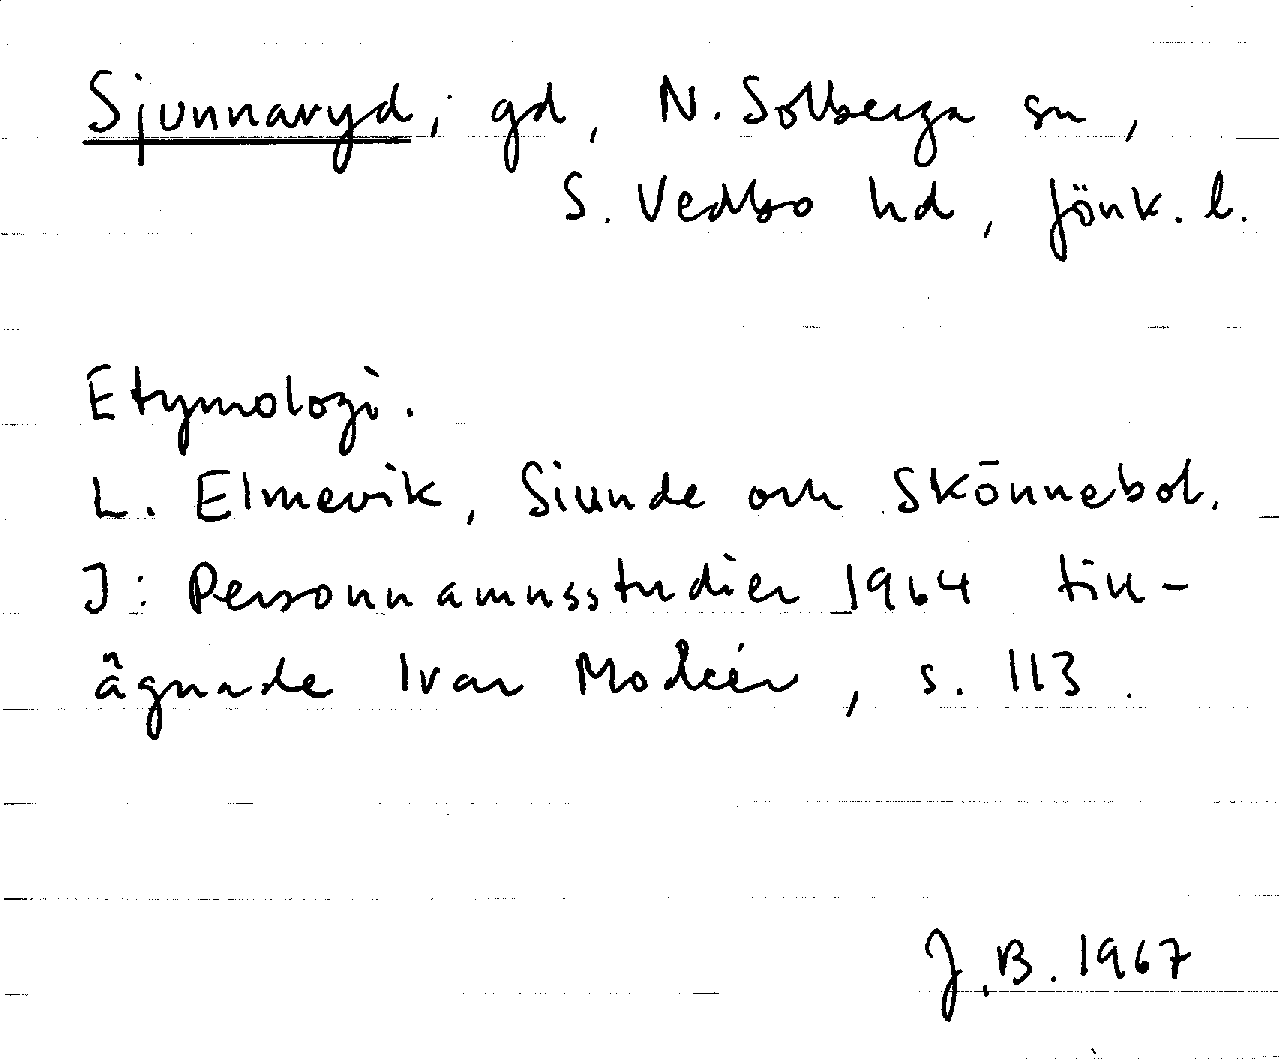 Sjunnaryd, gd, N. Solberga sn,
S. Vedbo hd, Jönk. l.
Etymologi.
L. Elmevik, Siunde och Skōnnebol.
I: Personnamnsstudier 1964 till-
ägnade Ivar Modéer, s. 113.
J.B. 1967